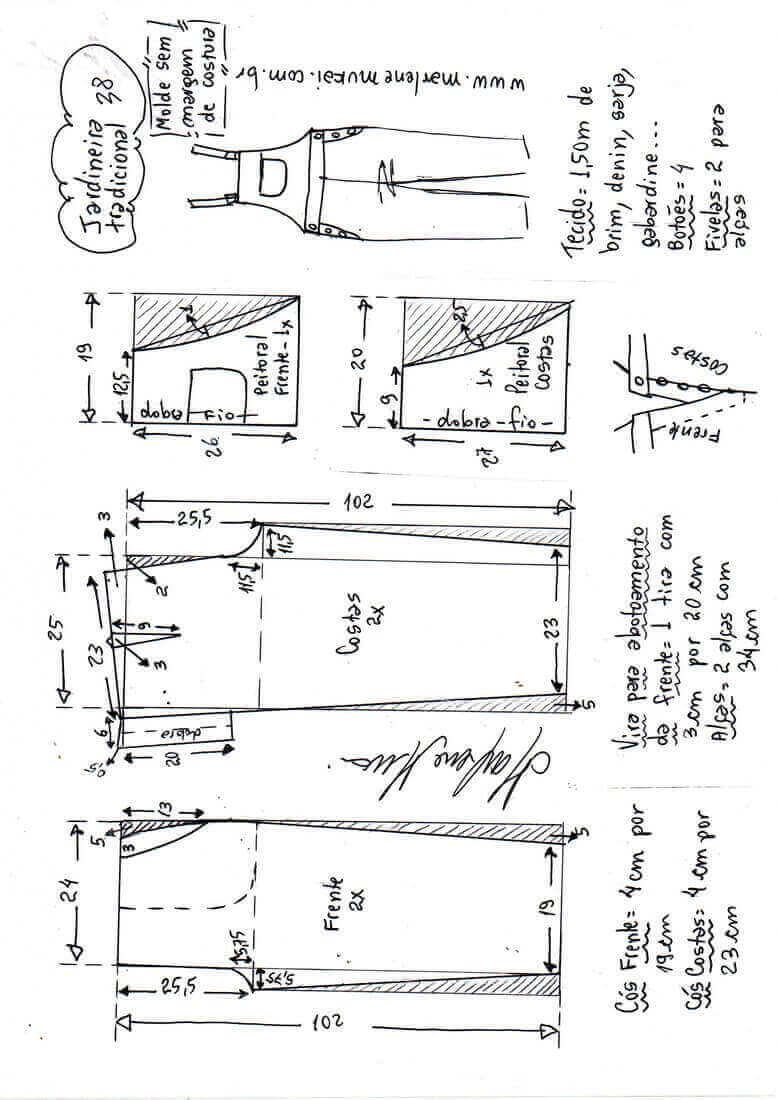 Jardineira
tradicional 38
Molde sem
margem
de costura
www.marlenemukai.com.br
Tecido = 1,50m de
brim, denin, sarja,
gabardine...
Botões = 4
Fivelas = 2 para
alças
19
12,5
1
dobra
Fio
Peitoral
Frente - 1x
26
20
9
2,5
1x
Peitoral
Costas
dobra - fio
27
Costas
Frente
102
25,5
3
2
11,5
11,5
25
23
9
3
Costas
2x
23
5
6
0,5
dobra
20
Vira para abotoamento
da frente = 1 tira com
3 cm por 20 cm
Alças = 2 alças com
34 cm
13
5
3
24
Frente
2x
5
19
5,75
5,75
25,5
102
Cós Frente = 4 cm por
19 cm
Cós Costas = 4 cm por
23 cm